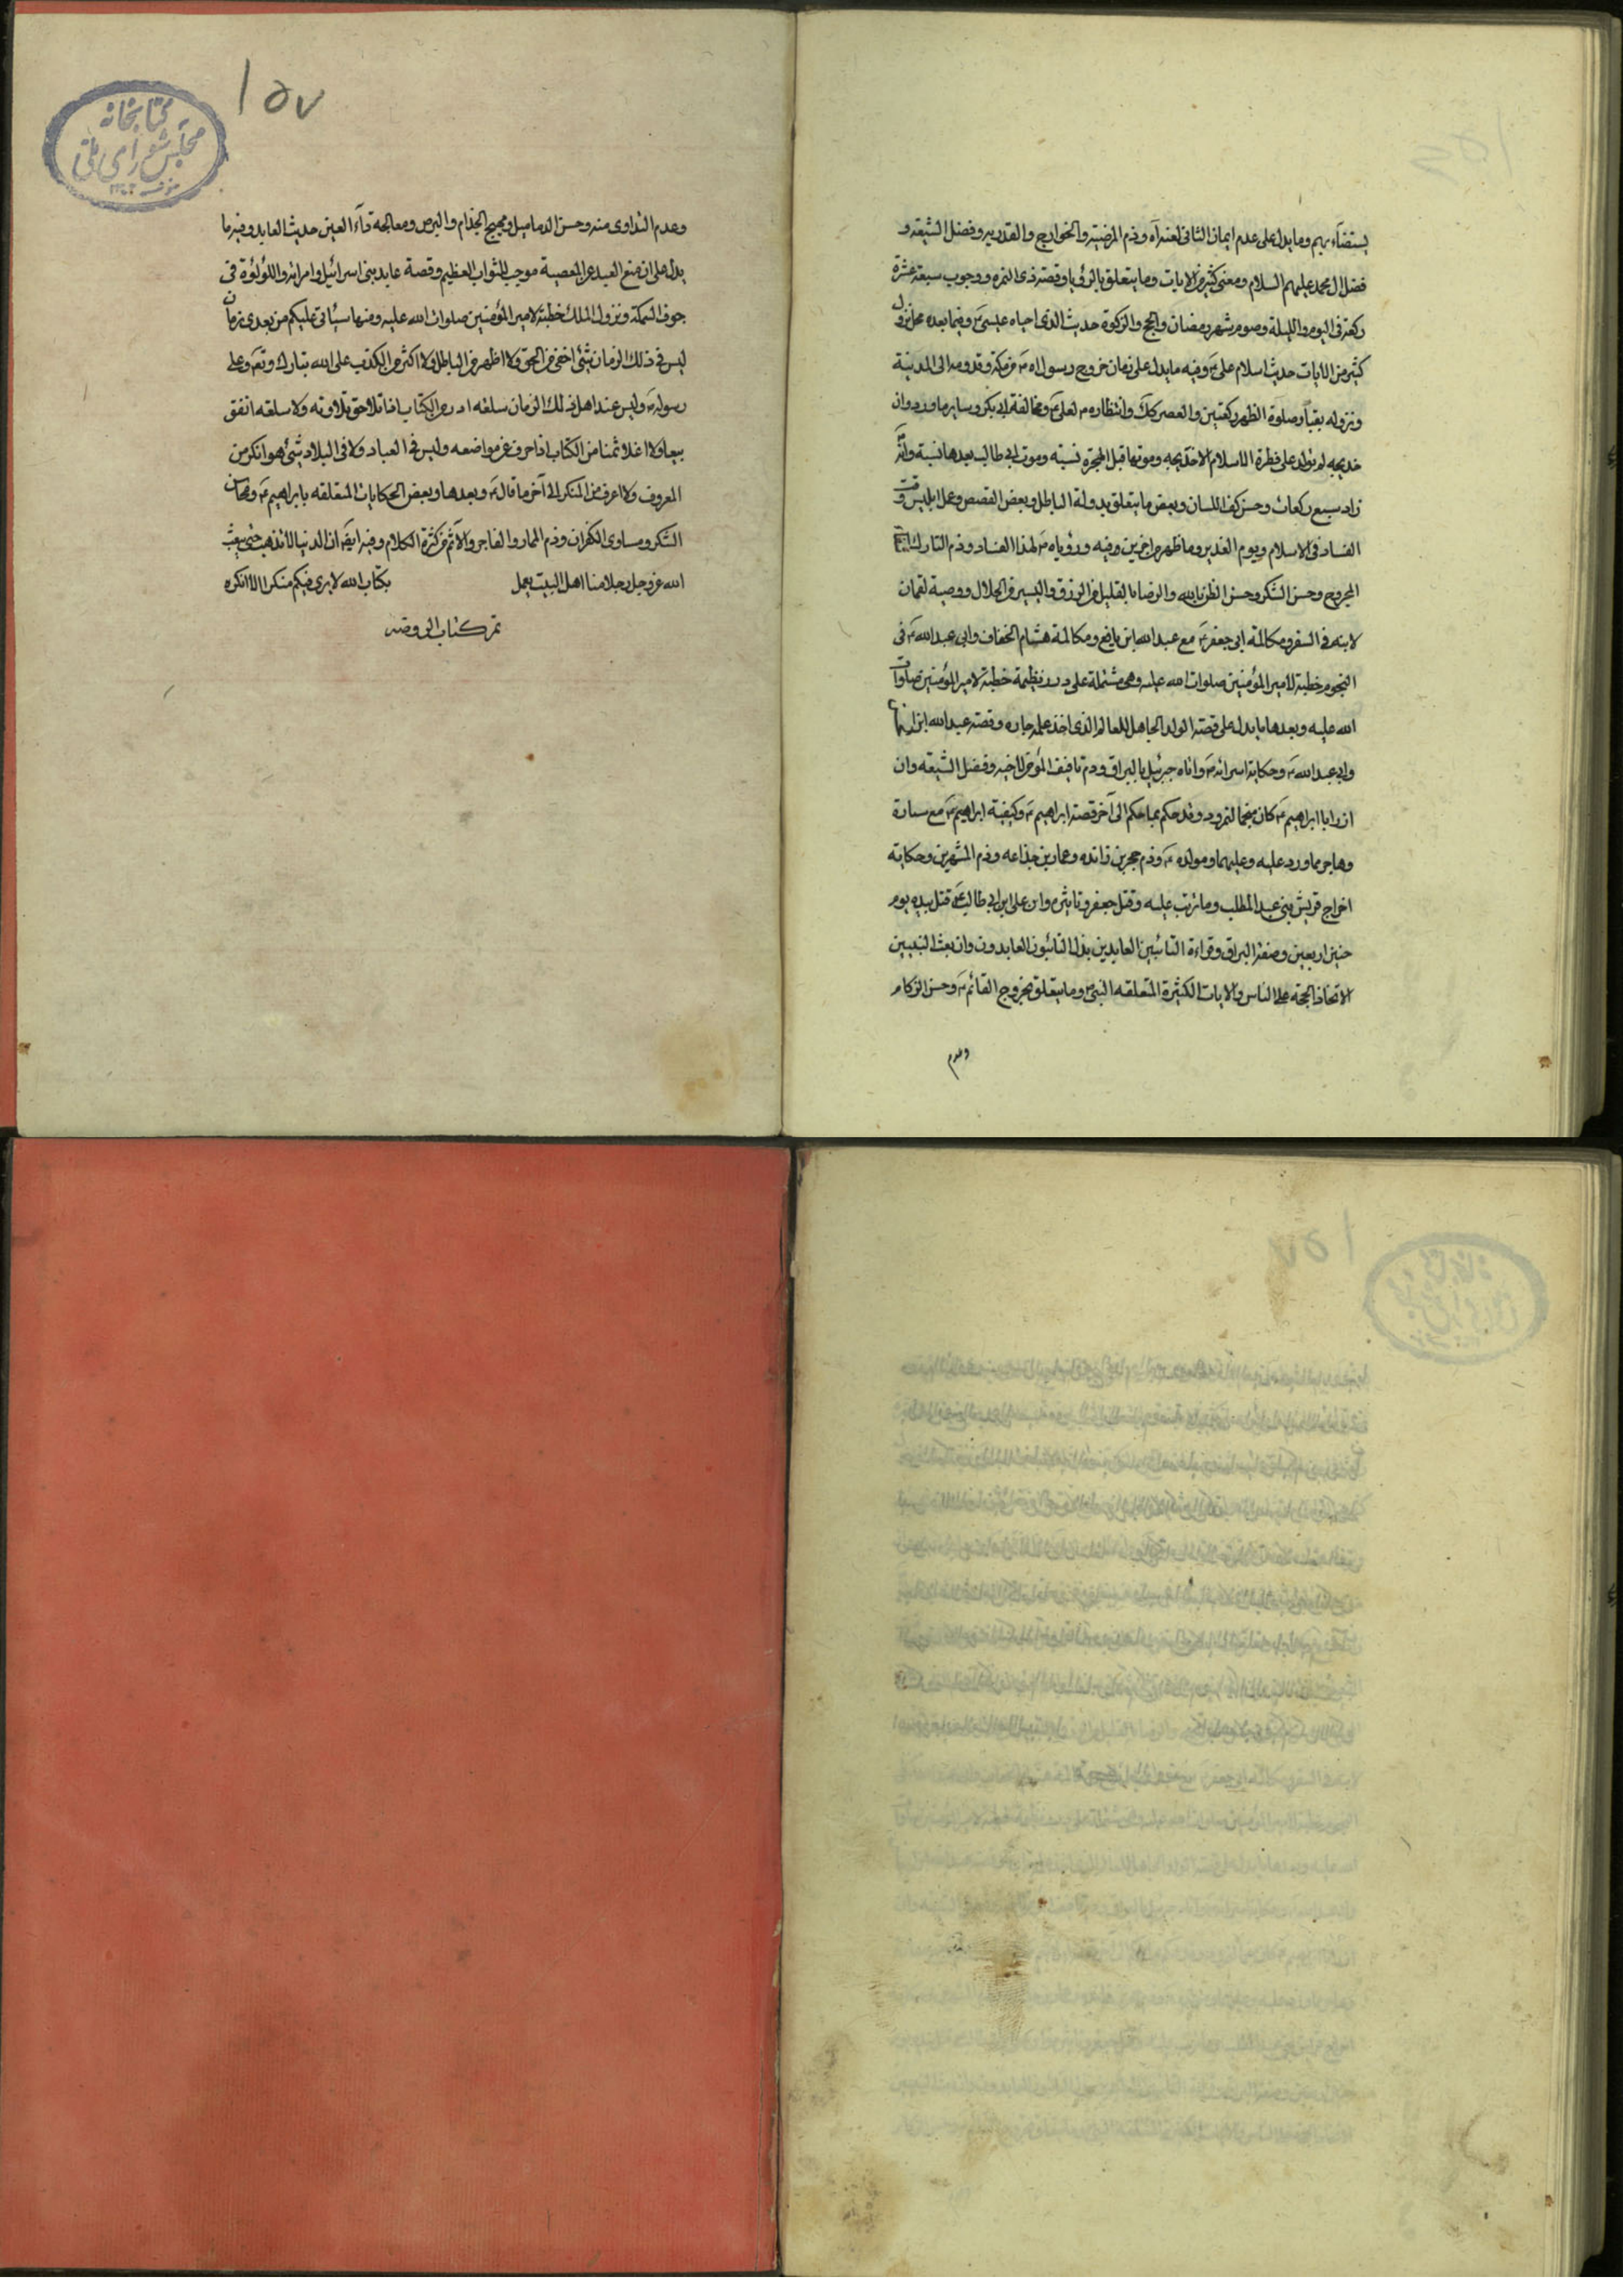 يستضاء بهم وما يدل على عدم ايمان الثانى لعنه الله وذم المرجئة والخوارج والقدريه وفضل الشيعة و
فضل ال محمد عليهم السلام ومعنى كثير من الايات وما يتعلق بالرؤيا وقصة ذى النمره ووجوب سبعة عشرة
ركعة فى اليوم والليلة وصوم شهر رمضان والحج والزكوة حديث الذى احياه عيسى ؑ وفيما بعده محل نزول
كثير من الايات حديث اسلام على ؑ وفيه ما يدل على زمان خروج رسول الله ؐ من مكة وقدومه الى المدينة
ونزوله بقبا وصلوة الظهر ركعتين والعصر كك وانتظاره لعلى ؑ ومخالفة ابى بكر وساير ما ورد وان
خديجه لم تولد على فطرة الاسلام الا خديجه وموتها قبل الهجرة بسنة وموت ابى طالب بعدها بسنة وانه
زاد سبع ركعات وحسن كف اللسان وبعض ما يتعلق بدولة الباطل وبعض القصص وعمل ابليس وقت
الفساد فى الاسلام ويوم الغدير وما ظهر من اخرين وفيه ورؤياه ؐ لهذا الفساد وذم التارك
المجروح وحسن الشكر وحسن الظن بالله والرضا بالقليل من الرزق واليسير من الحلال ووصية لقمان
لابنه فى السفر ومكالمة ابى جعفر ؑ مع عبد الله ابن نافع ومكالمة هشام الخفاف وابى عبد الله ؑ فى
النجوم خطبة لامير المؤمنين صلوات الله عليه وهى مشتملة على درر نظيمة خطبة لامير المؤمنين صلوات
الله عليه وبعدها ما يدل على قصة الولد الجاهل للعالم الذى اخذ علمه جاره وقصة عبد الله ابن
وابى عبد الله ؑ وحكاية اسرائه ؐ واتاه جبرئيل بالبراق وذم تافيف المؤمن لاخيه وفضل الشيعه وان
ازر ابا ابراهيم ؑ كان منجما لنمرود وقد حكم بما حكم الى آخر قصة ابراهيم ؑ وكيفية ابراهيم ؑ مع سارة
وهاجر مما ورد عليه وعليهما ومولده ؑ وذم حجر بن زائده وعمار بن جذاعه وذم المشهرين وحكاية
اخراج قريش بنى عبد المطلب وما ترتب عليه وقتل جعفر وتاثيره وان على ابن ابى طالب ؑ قتل بيده يوم
حنين اربعين وصفة البراق وقراءة التائبين العابدين بدل التائبون العابدون وان بعث النبيين
لاتخاذ الحجة على الناس والايات الكثيرة المتعلقه النبى وما يتعلق بخروج القائم ؑ وحسن الزكام
وعدم
۱۵۷
كتابخانه
مجلس شوراى ملى
وعدم التداوى منه وحسن الدماميل ومهيج الجذام والبرص ومعالجة داء العين حديث العابد وفيه ما
يدل على ان منع العبد عن المعصية موجب للثواب العظيم وقصة عابد بنى اسرائيل وامراته واللؤلؤة فى
جوف السمكة ونزول الملك خطبة لامير المؤمنين صلوات الله عليه ومنها سيأتى عليكم من بعدى زمان
ليس فى ذلك الزمان شئ اخفى من الحق ولا اظهر من الباطل ولا اكثر من الكذب على الله تبارك وتعالى وعلى
رسوله ؐ وليس عند اهل ذلك الزمان سلعة ابور من الكتاب اذا تلا حق تلاوته ولا سلعة انفق
بيعا ولا اغلا ثمنا من الكتاب اذا حرف عن مواضعه وليس فى العباد ولا فى البلاد شئ هو انكر من
المعروف ولا اعرف من المنكر الى آخر ما قال ؑ وبعدها وبعض الحكايات المتعلقه بابراهيم ؑ ومحاسن
الشكر ومساوى الكفران وذم الممار والفاجر والآثم من كثرة الكلام وفيه ايضا ان الدنيا لا تذهب حتى يبعث
الله عز وجل رجلا منا اهل البيت يعمل بكتاب الله لا يرى فيكم منكرا الا انكره
تم كتاب الروضه